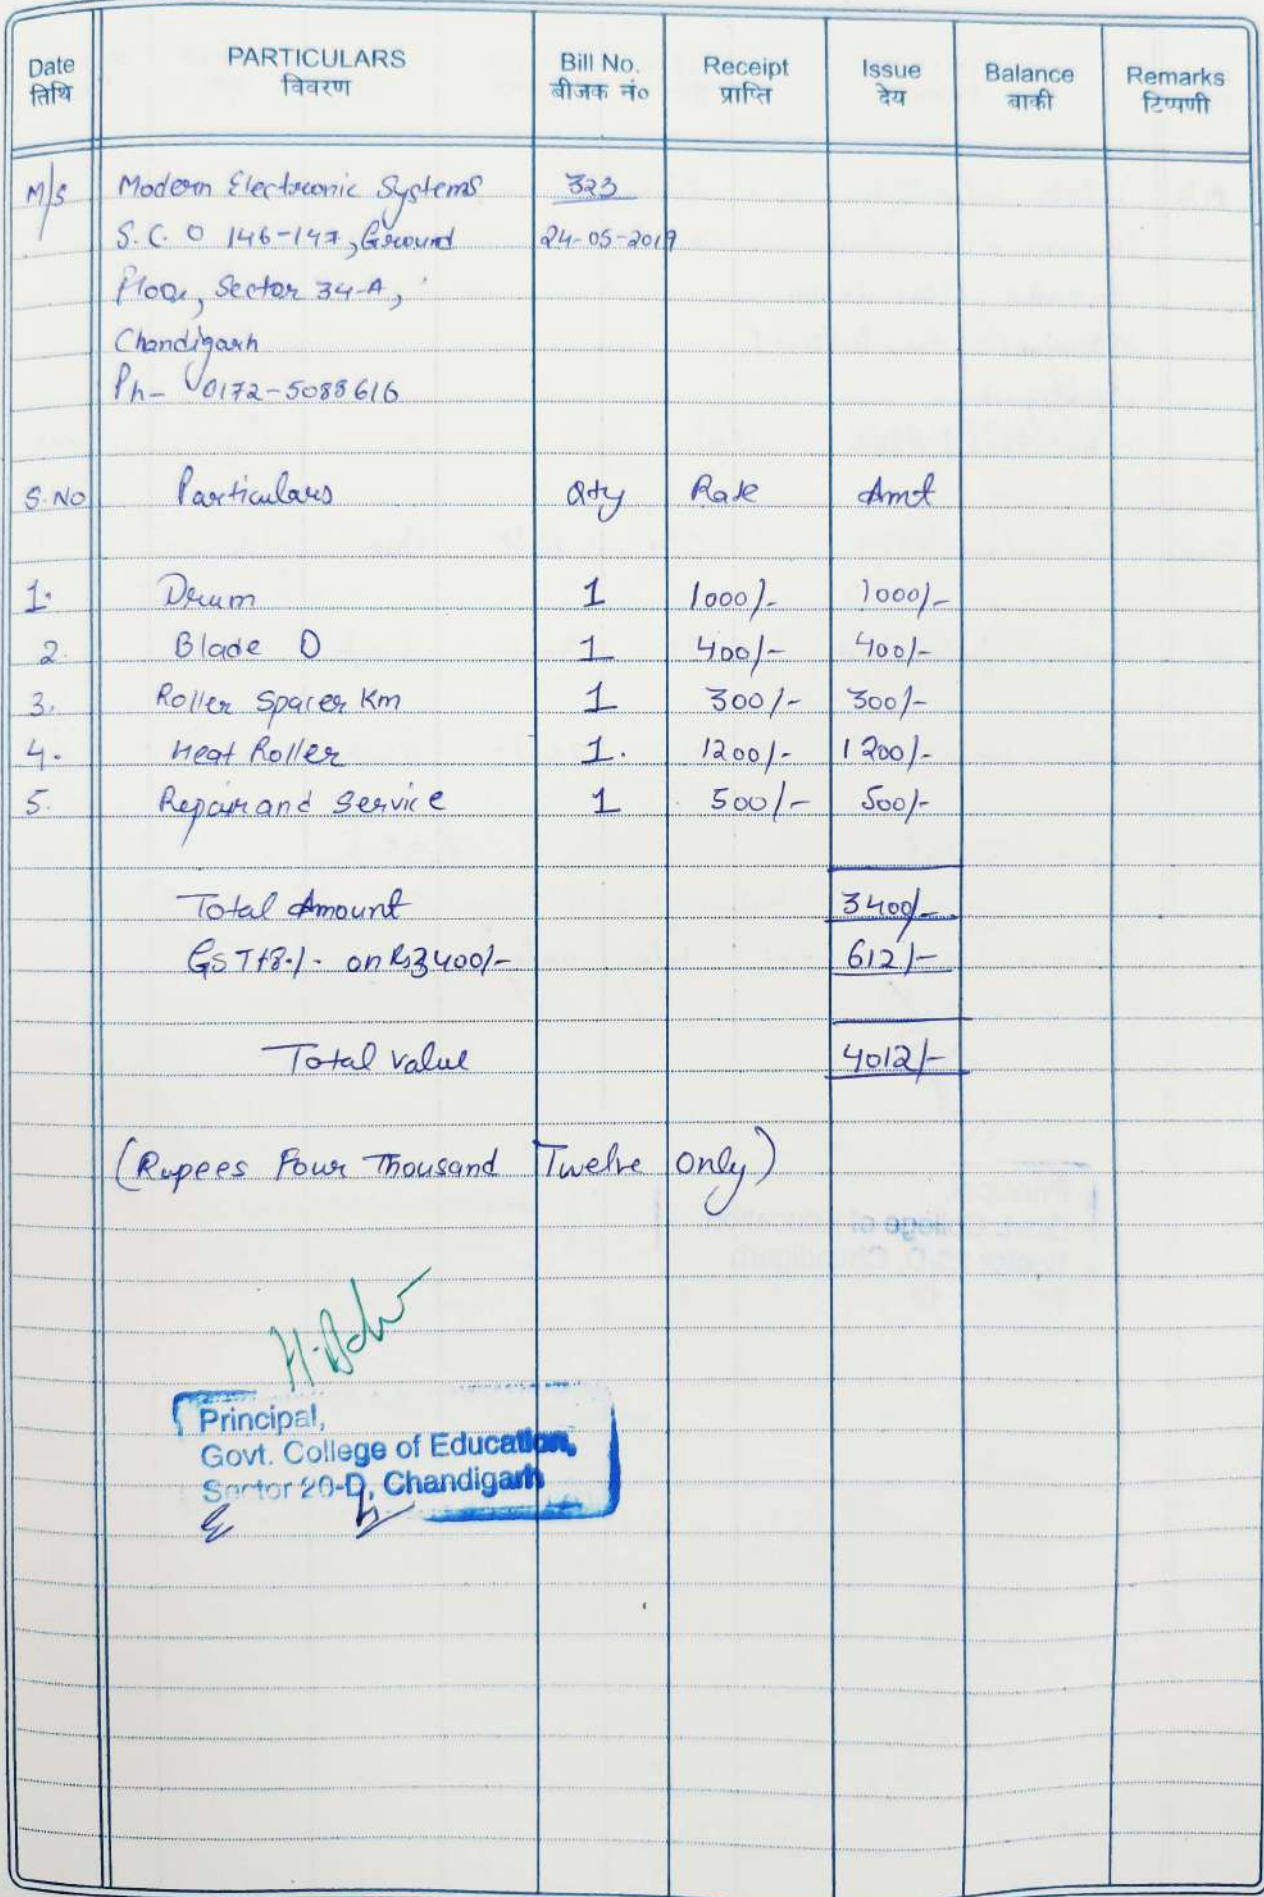 Date PARTICULARS Bill No. Receipt Issue Balance Remarks
तिथि विवरण बीजक नं० प्राप्ति देय बाकी टिप्पणी
M/s Modern Electronic Systems 323
S.C.O 146-147, Ground 24-05-2019
Floor, Sector 34-A,
Chandigarh
Ph- 0172-5088616
S.No Particulars Qty Rate Amt
1. Drum 1 1000/- 1000/-
2. Blade D 1 400/- 400/-
3. Roller Spacer Km 1 300/- 300/-
4. Heat Roller 1. 1200/- 1200/-
5. Repair and Service 1 500/- 500/-
Total Amount 3400/-
GST 18·/· on Rs3400/- 612/-
Total value 4012/-
(Rupees Four Thousand Twelve only)
Principal,
Govt. College of Education,
Sector 20-D, Chandigarh